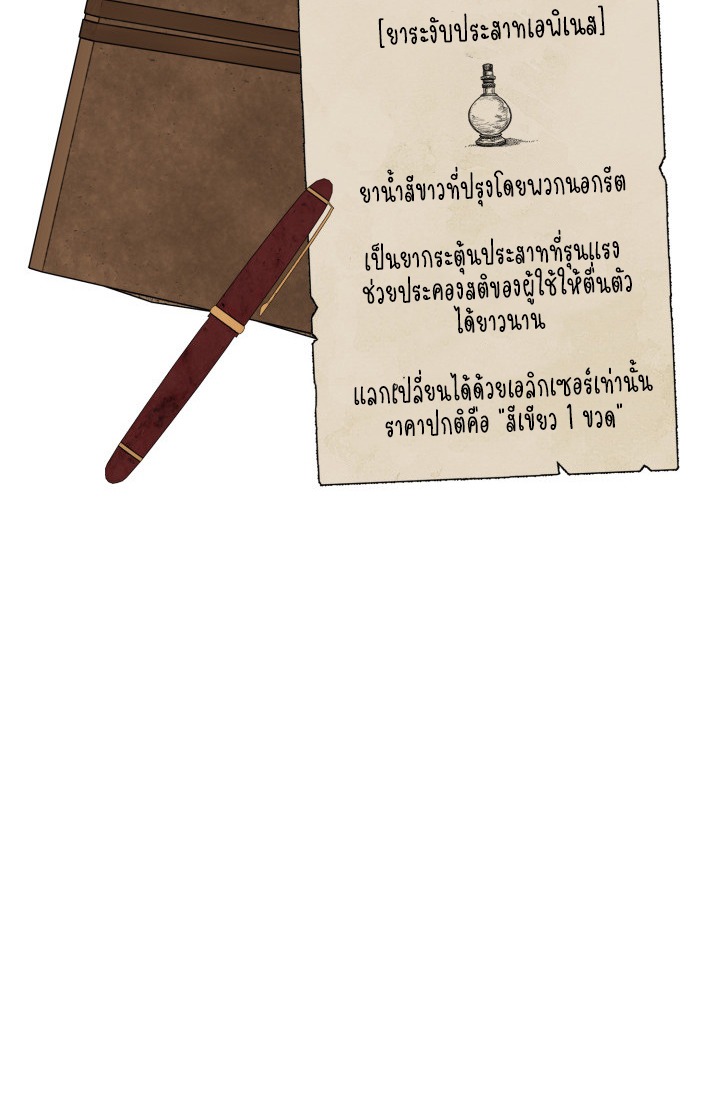 [ยาระงับประสาทเอพิเนส]
ยาน้ำสีขาวที่ปรุงโดยพวกนอกรีต
เป็นยากระตุ้นประสาทที่รุนแรง
ช่วยประคองสติของผู้ใช้ให้ตื่นตัว
ได้ยาวนาน
แลกเปลี่ยนได้ด้วยเอลิกเซอร์เท่านั้น
ราคาปกติคือ "สีเขียว 1 ขวด"